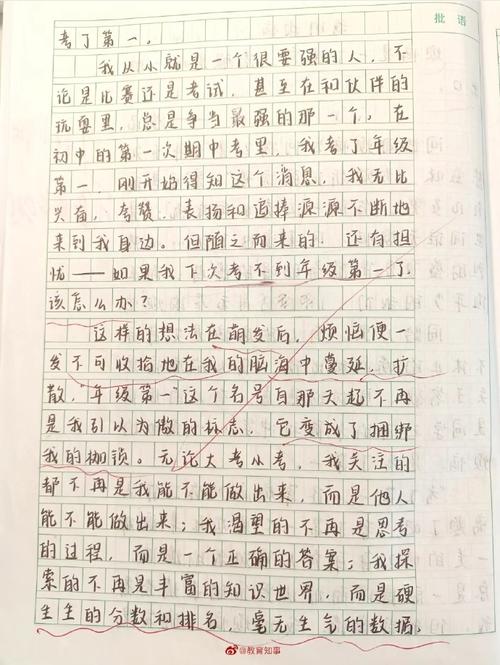 批语
考了第一。
我从小就是一个很要强的人，不
论是比赛还是考试，甚至在和伙伴的
玩耍里，总是争当最强的那一个，在
初中的第一次期中考里，我考了年级
第一，刚开始得知这个消息，我无比
兴奋，夸赞、表扬和追捧源源不断地
来到我身边。但随之而来的，还有担
忧——如果我下次考不到年级第一了，
该怎么办？
这样的想法在萌发后，烦恼便一
发不可收拾地在我的脑海中蔓延，扩
散，“年级第一”这个名号自那天起不再
是我引以为傲的标志，它变成了捆绑
我的枷锁。无论大考小考，我关注的
都不再是我能不能做出来，而是他人
能不能做出来；我渴望的不再是思考
的过程，而是一个正确的答案；我探
索的不再是丰富的知识世界，而是硬
生生的分数和排名，毫无生气的数据。
@教育知事